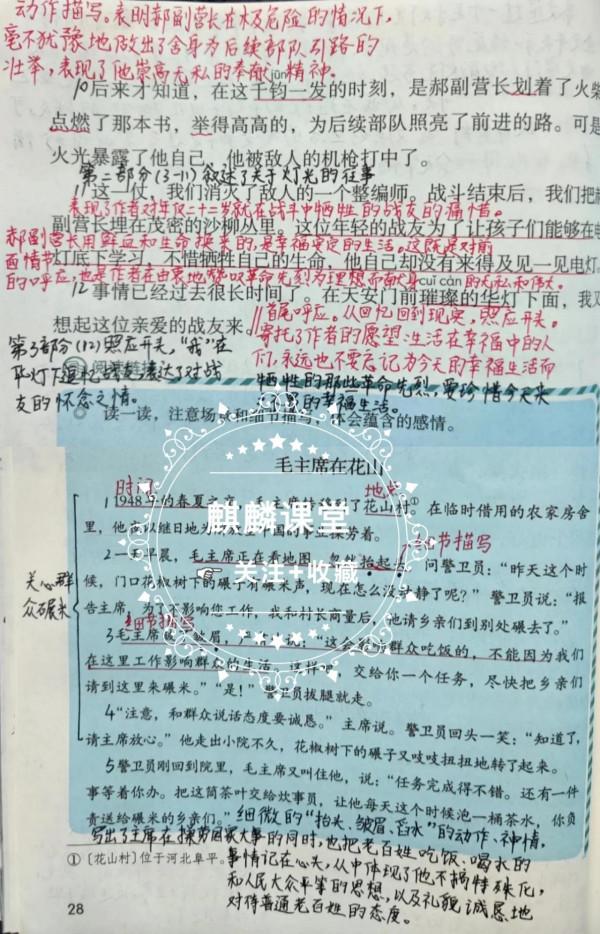 动作描写。表明郝副营长在极危险的情况下,
毫不犹豫地做出了舍身为后续部队引路的
壮举,表现了他崇高无私的奉献精神。
jūn
10后来才知道,在这千钧一发的时刻,是郝副营长划着了火柴
点燃了那本书,举得高高的,为后续部队照亮了前进的路。可是
火光暴露了他自己,他被敌人的机枪打中了。
第二部分(3-11)叙述了关于灯光的往事
11这一仗,我们消灭了敌人的一个整编师。战斗结束后,我们把
表现了作者对年仅二十二岁就在战斗中牺牲的战友的痛惜。
副营长埋在茂密的沙柳丛里。这位年轻的战友为了让孩子们能够在电
郝副营长用鲜血和生命换来的,是幸福安定的生活。这既是对前
灯底下学习,不惜牺牲自己的生命,他自己却没有来得及见一见电灯。
面情节的呼应,也是作者在由衷地赞叹革命先烈为理想而献身的无私和伟大。
cuǐ càn
12事情已经过去很长时间了。在天安门前璀璨的华灯下面,我又
想起这位亲爱的战友来。
首尾呼应。从回忆回到现实,照应开头。
寄托了作者的愿望:生活在幸福中的人
们,永远也不要忘记为今天的幸福生活而
牺牲的那些革命先烈,要珍惜今天来
的幸福生活。
第3部分(12)照应开头,“我”在
华灯下追忆战友,表达了对战
友的怀念之情。
读一读,注意场景和细节描写,体会蕴含的感情。
毛主席在花山
时间
地点
1 1948年的春夏之交,毛主席转移到了花山村①。在临时借用的农家房舍
里,他夜以继日地为解放全中国的事业操劳着。
细节描写
2一天早晨,毛主席正在看地图,忽然抬起头,问警卫员:“昨天这个时
候,门口花椒树下的碾子有碾米声,现在怎么没动静了呢?”警卫员说:“报
告主席,为了不影响您工作,我和村长商量后,他请乡亲们到别处碾去了。”
细节描写
3毛主席皱了皱眉,严肃地说:“这会影响群众吃饭的,不能因为我们
在这里工作影响群众的生活。这样吧,交给你一个任务,尽快把乡亲们
请到这里来碾米。”“是!”警卫员拔腿就走。
关心群
众碾米
4“注意,和群众说话态度要诚恳。”主席说。警卫员回头一笑:“知道了,
请主席放心。”他走出小院不久,花椒树下的碾子又吱吱扭扭地转了起来。
5警卫员刚回到院里,毛主席又叫住他,说:“任务完成得不错。还有一件
事等着你办。把这筒茶叶交给炊事员,让他每天这个时候泡一桶茶水,你负
责送给碾米的乡亲们。”
细微的“抬头、皱眉、舀水”的动作、神情,
写出了主席在操劳国家大事的同时,也把老百姓吃饭、喝水的
事情记在心头,从中体现了他不搞特殊化,
和人民大众平等的思想,以及礼貌诚恳地
对待普通老百姓的态度。
①〔花山村〕位于河北阜平。
28
麒麟课堂
关注+收藏